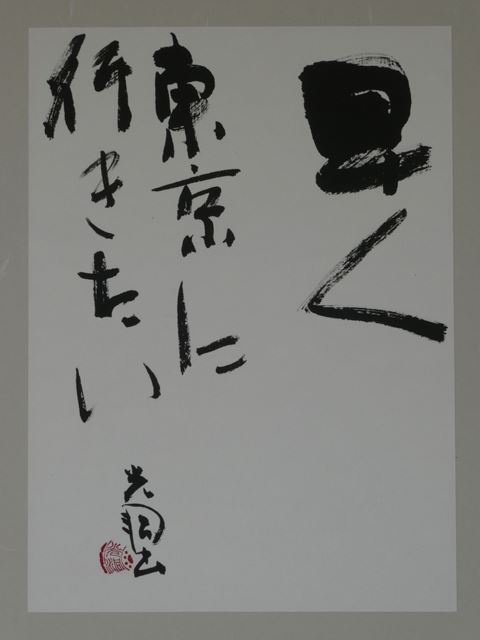 早く
東京に
行きたい